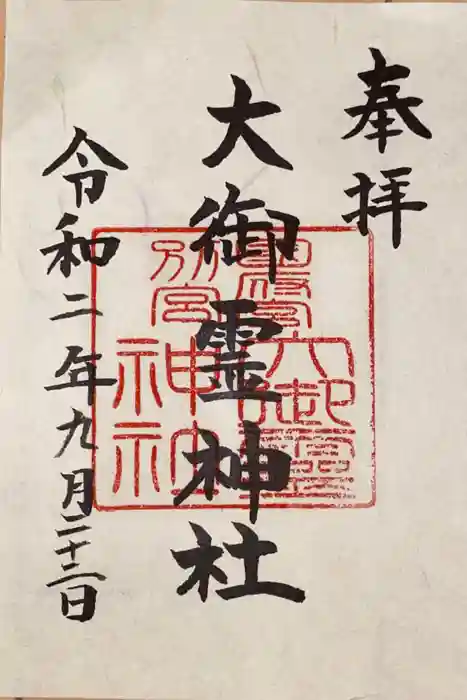 奉拝
大御霊神社
令和二年九月二十二日
大御靈
別宮
神社